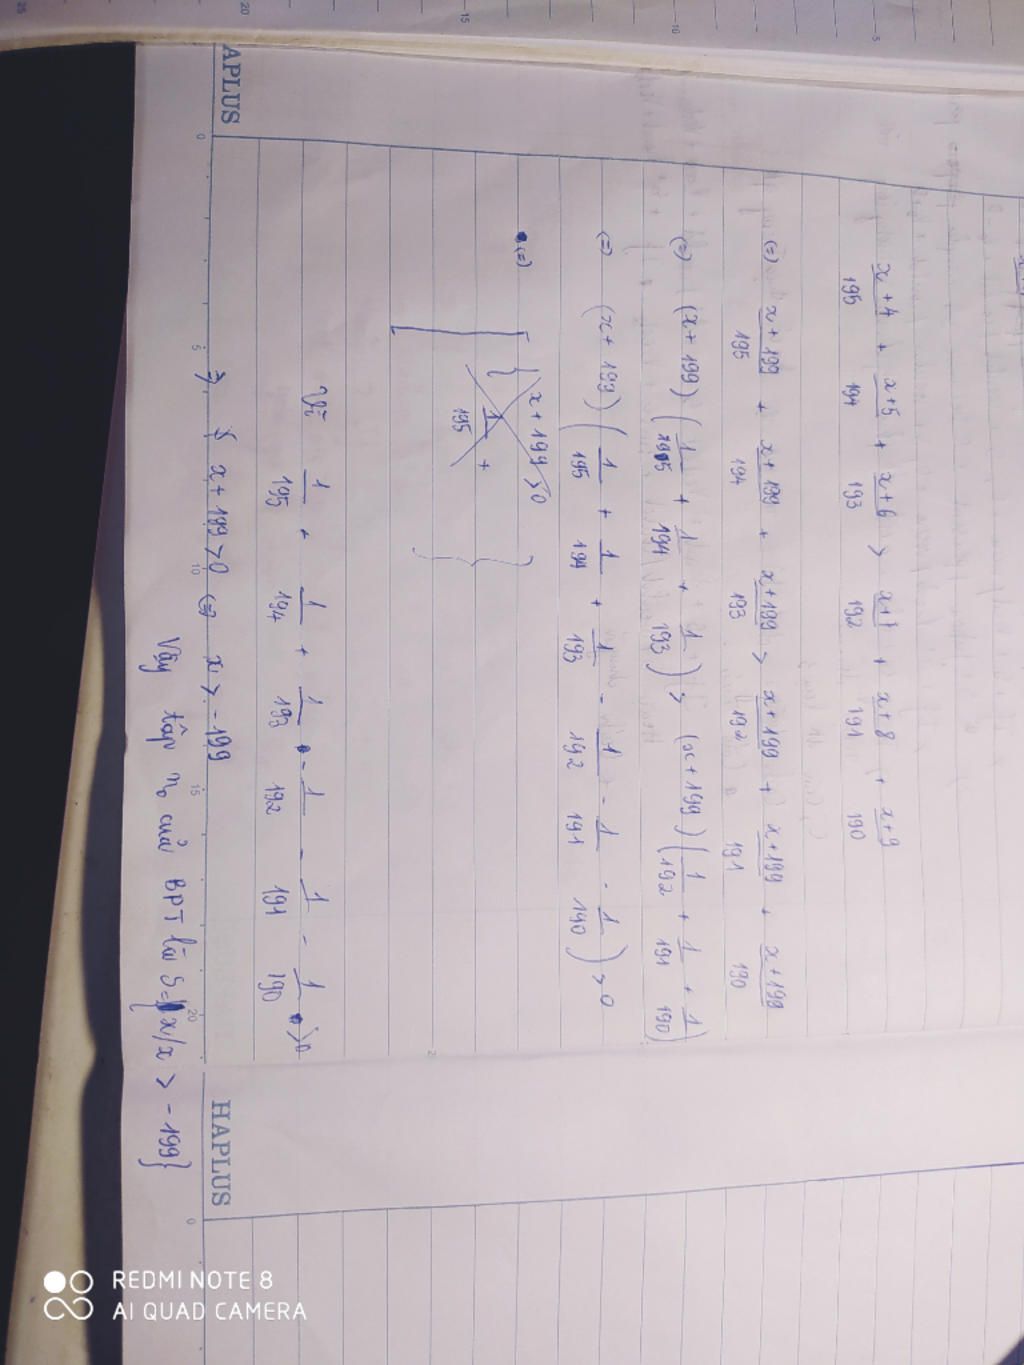 x+4/195 + x+5/194 + x+6/193 > x+1/192 + x+8/191 + x+9/190
(=) x+199/195 + x+199/194 + x+199/193 > x+199/192 + x+199/191 + x+199/190
(=) (x+199)(1/195 + 1/194 + 1/193) > (x+199)(1/192 + 1/191 + 1/190)
(=) (x+199)(1/195 + 1/194 + 1/193 - 1/192 - 1/191 - 1/190) > 0
(=) [ { x+199 > 0
1/195 +
Vì 1/195 + 1/194 + 1/193 - 1/192 - 1/191 - 1/190 > 0
=> x+199 > 0 (=) x > -199
Vậy tập n0 của BPT là S={x/x > -199}
APLUS
HAPLUS
0
5
10
15
20
0
5
10
15
20
25
2
REDMI NOTE 8
AI QUAD CAMERA